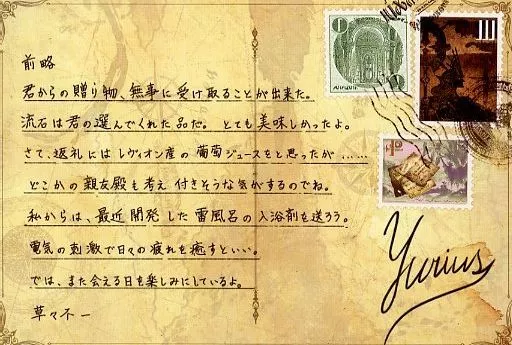 前略
君からの贈り物、無事に受け取ることが出来た。
流石は君の選んでくれた品だ。とても美味しかったよ。
さて、返礼にはレヴィオン産の葡萄ジュースをと思ったが……
どこかの親友殿も考え付きそうな気がするのでね。
私からは、最近開発した雷風呂の入浴剤を送ろう。
電気の刺激で日々の疲れを癒すといい。
では、また会える日を楽しみにしているよ。
草々不一
Yurius
1
1
III